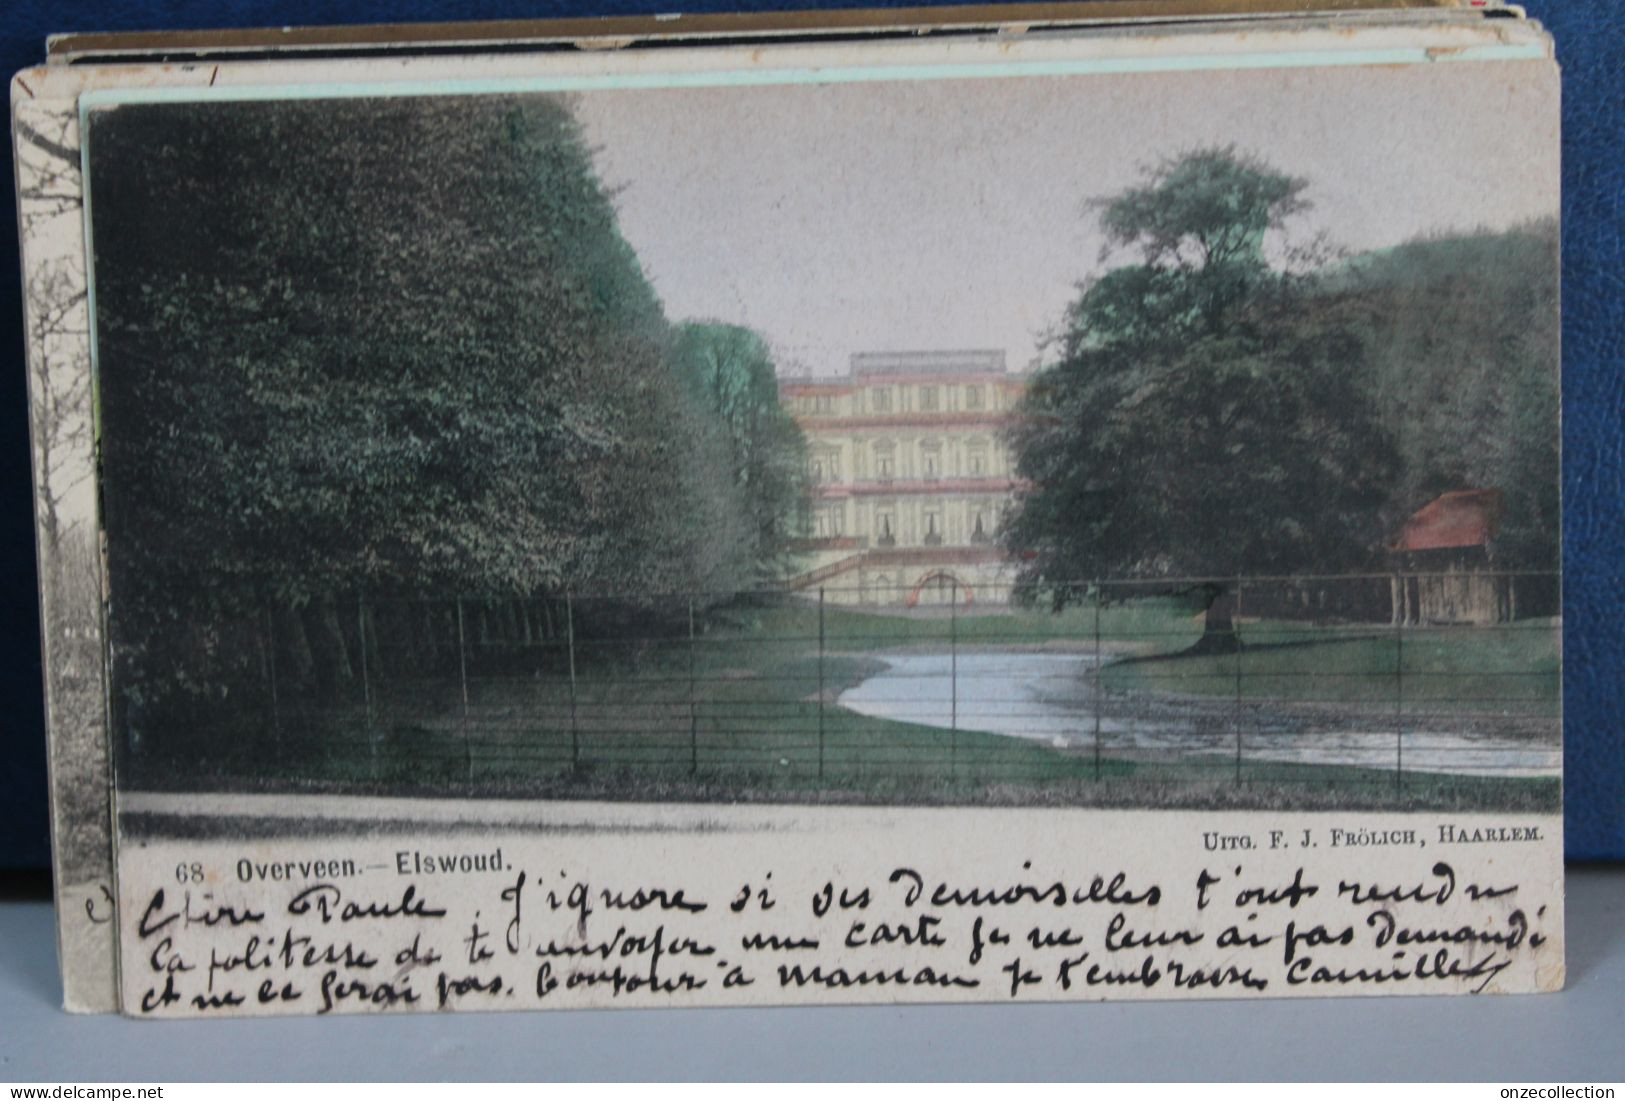 UITG. F. J. FRÖLICH, HAARLEM.
68 Overveen.—Elswoud.
Chère Paule, J'ignore si ses Demoiselles t'ont rendu
la politesse de te envoyer une carte je ne leur ai pas Demandé
et ne le ferai pas. bonjour à maman je t'embrasse Camille
onzecollection